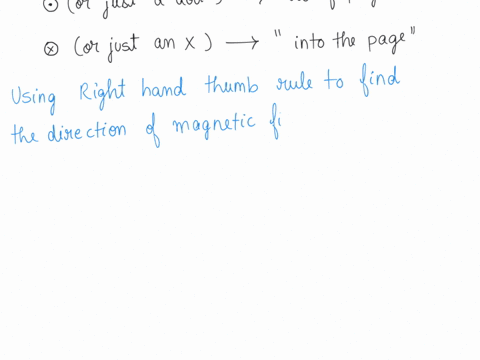 ⊗ (or just an X) ⟶ " into the page"
Using Right hand thumb rule to find
the direction of magnetic fi